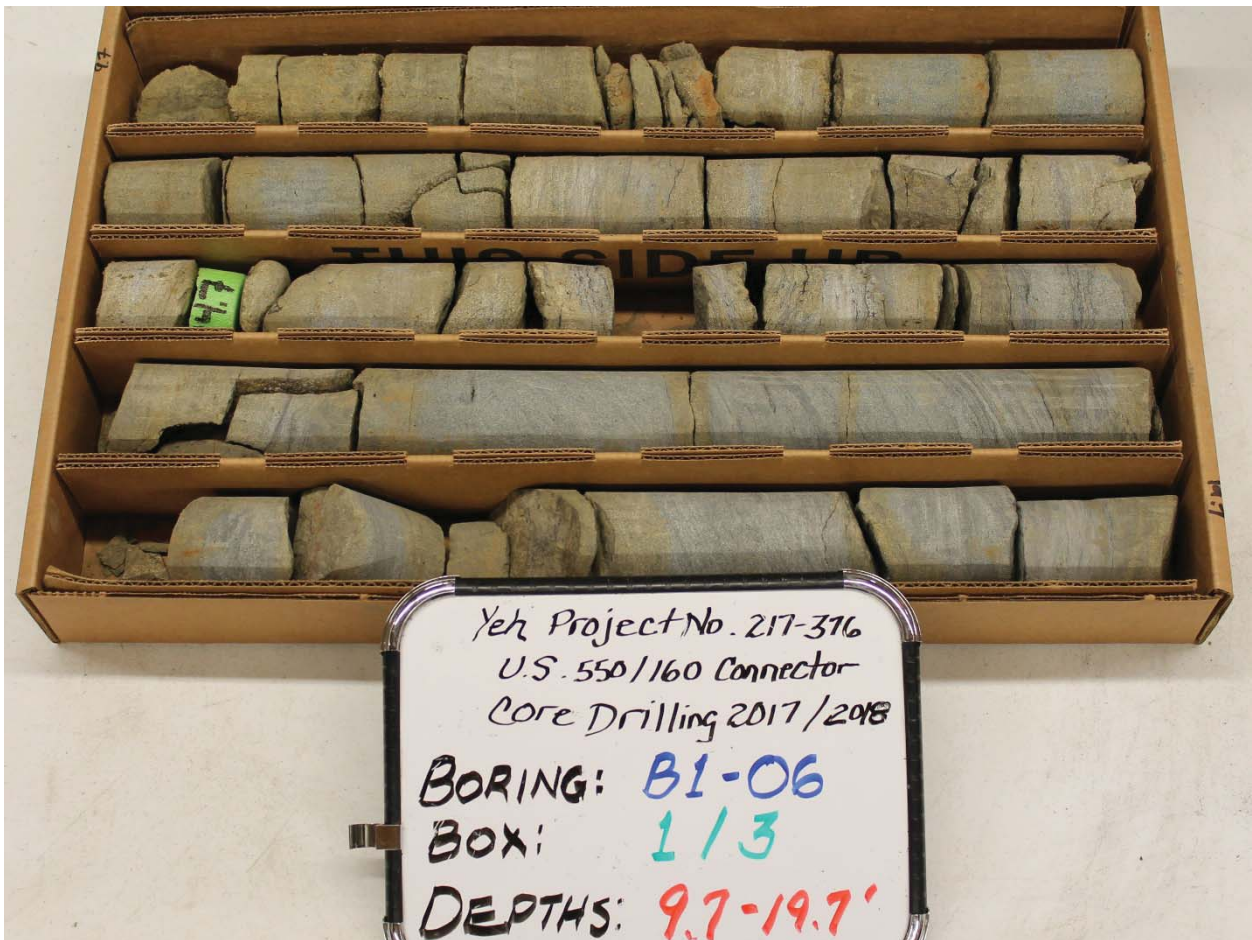 9.7
THIS SIDE UP
14.7
Yeh Project No. 217-376
U.S. 550/160 Connector
Core Drilling 2017/2018
BORING: B1-06
BOX: 1/3
DEPTHS: 9.7-19.7'